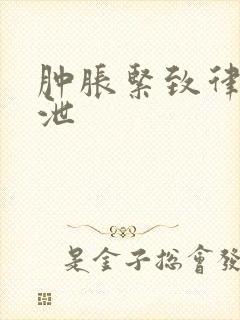 肿胀紧致律
泄
是金子总會發